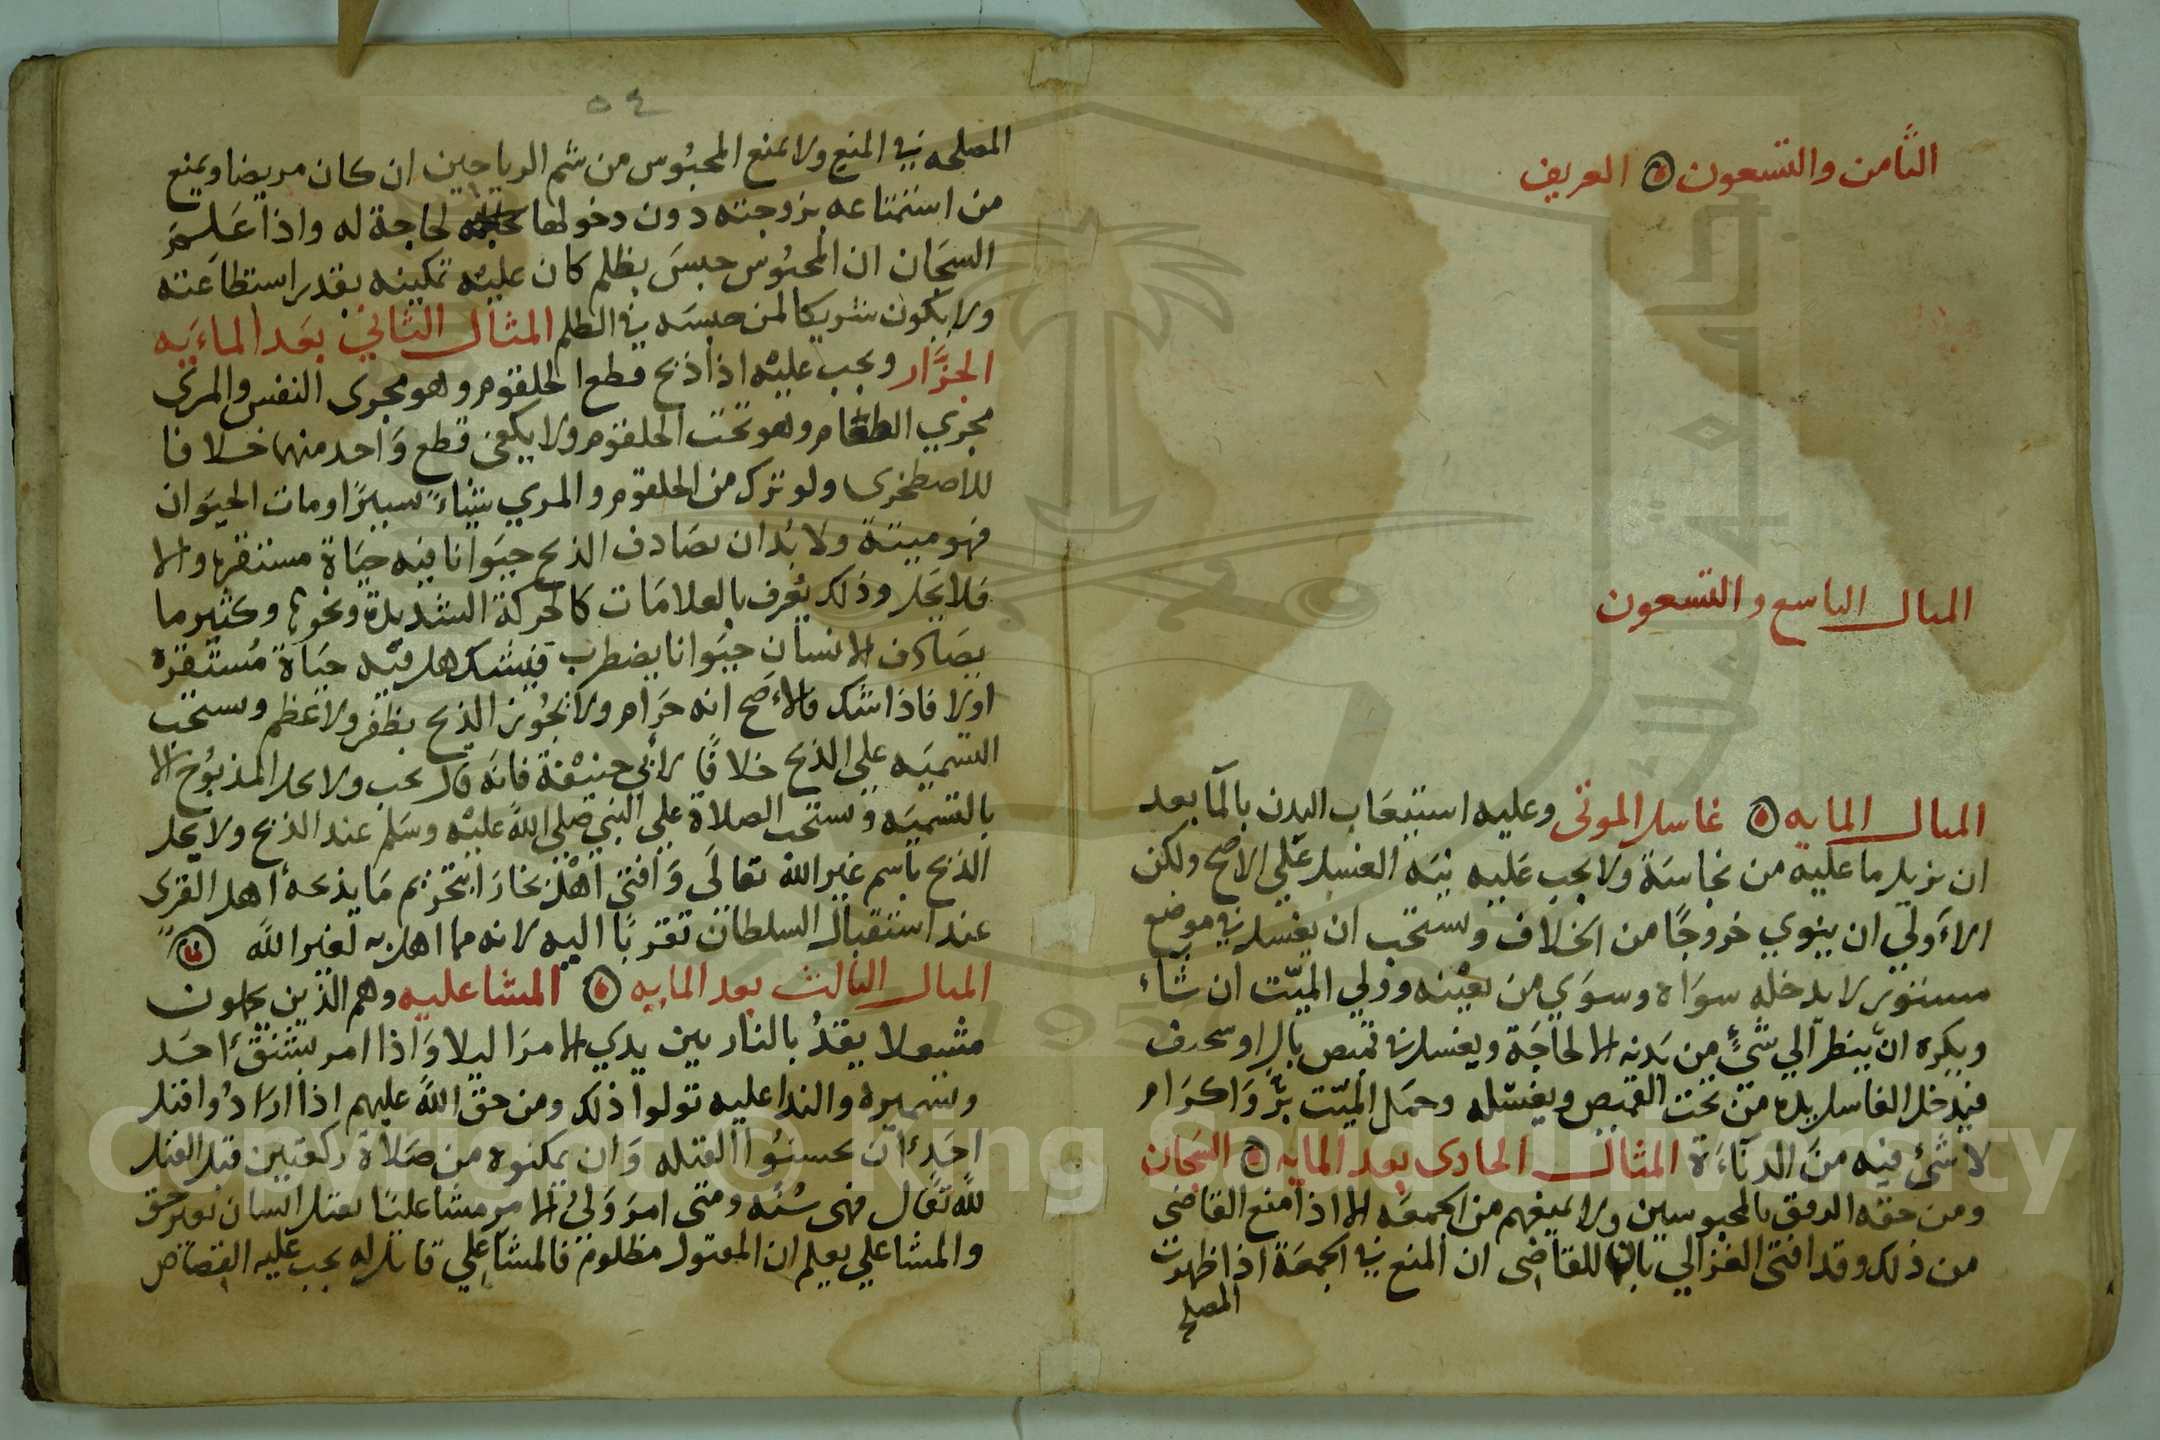 الثامن والتسعون العريف
المثال التاسع والتسعون
المثال المايه غاسل الموتى وعليه استيعاب البدن بالما بعد
ان يزيل ما عليه من نجاسة ولا يجب عليه نيه الغسل على الاصح ولكن
الاولي ان ينوي خروجا من الخلاف ويستحب ان يغسل في موضع
مستور لا يدخله سواه وسوي من يعينه وولي الميت ان شاء
ويكره ان ينظر الي شئ من بدنه الا لحاجة ويغسل في قميص بال او سحيف
فيدخل الغاسل يده من تحت القميص ويغسله وحمل الميت بر واكرام
لا شئ فيه من الدناءة المثال الحادى بعد المايه السجان
ومن حقه الرفق بالمحبوسين ولا يمنعهم من الجمعه الا اذا منع القاضى
من ذلك وقد افتى الغزالي بان للقاضى ان المنع في الجمعة اذا ظهرت
المصلح
٥٤
المصلحه في المنع ولا يمنع المحبوس من شم الرياحين ان كان مريضا ويمنع
من استمتاعه بزوجته دون دخولها لحاجة له واذا علم
السجان ان المحبوس حبس بظلم كان عليه تمكينه بقدر استطاعته
ولا يكون شريكا لمن حبسه في الظلم المثال الثاني بعد الماءيه
الجزار ويجب عليه اذا ذبح قطع الحلقوم وهو مجرى النفس والمرى
مجري الطعام وهو تحت الحلقوم ولا يكفى قطع واحد منهما خلافا
للاصطخرى ولو ترك من الحلقوم والمري شياء يسيرا ومات الحيوان
فهو ميتة ولا بد ان يصادف الذبح حيوانا فيه حياة مستقرة والا
فلا يحل وذلك يعرف بالعلامات كالحركة الشديدة ونحوها وكثير ما
يصادف الانسان حيوانا يضطرب فيشك هل فيه حياة مستقرة
اولا فاذا شك فالأصح انه حرام ولا يجوز الذبح بظفر ولا عظم ويستحب
التسميه علي الذبح خلافا لابي حنيفة فانه قال يجب ولا يحل المذبوح الا
بالتسميه ويستحب الصلاة علي النبي صلى الله عليه وسلم عند الذبح ولا يحل
الذبح باسم غير الله تعالى وافتى اهل بخارا بتحريم ما يذبحه اهل القرى
عند استقبال السلطان تقربا اليه لانه مما اهل به لغير الله
المثال الثالث بعد المايه المشاعليه وهم الذين يحملون
مشعلا يقد بالنار بين يدي الامرا ليلا واذا امر بشنق احد
وتسميره والندا عليه تولوا ذلك ومن حق الله عليهم اذا ارادوا قتل
احد ان يحسنوا القتله وان يمكنوه من صلاة ركعتين قبل القتل
لله تعال فهى سنه ومتى امر ولي الامر مشاعليا بقتل انسان بغير حق
والمشاعلي يعلم ان المقتول مظلوم فالمشاعلي قاتل له يجب عليه القصاص